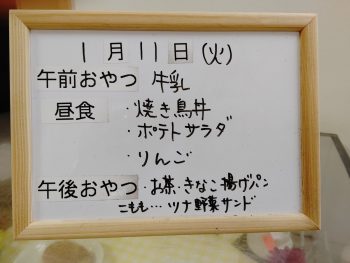 1月11日(火)
午前おやつ 牛乳
昼食 ・焼き鳥丼
・ポテトサラダ
・りんご
午後おやつ ・お茶・きなこ揚げパン
こもも… ツナ野菜サンド